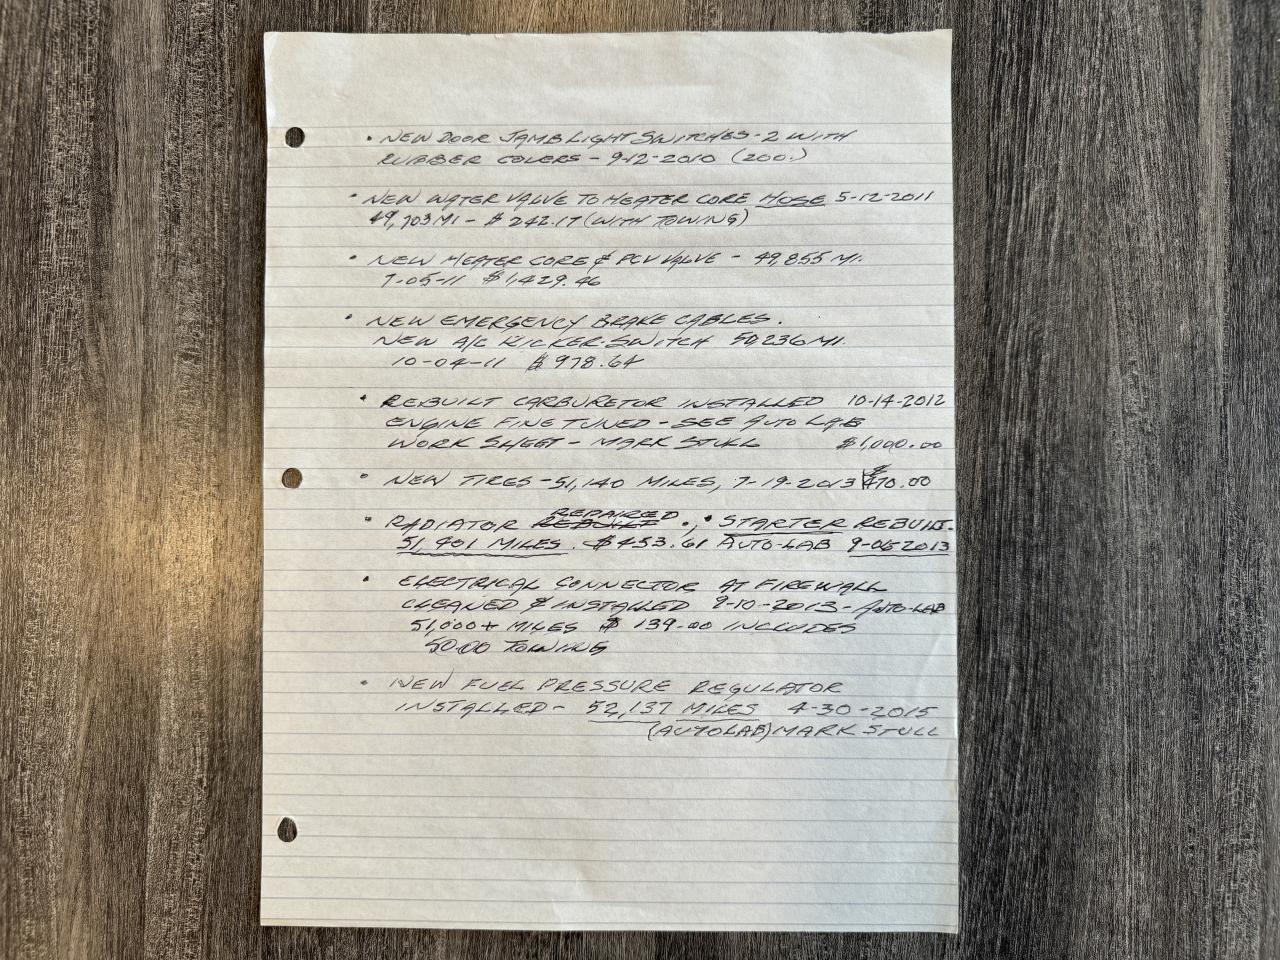 • NEW DOOR JAMB LIGHT SWITCHES - 2 WITH
RUBBER COVERS - 9-12-2010 (200.)
• NEW WATER VALVE TO HEATER CORE HOSE 5-12-2011
49,703 MI - $242.17 (WITH TOWING)
• NEW HEATER CORE & PCV VALVE - 49,855 MI.
7-05-11 $1,429.46
• NEW EMERGENCY BRAKE CABLES.
NEW A/C KICKER-SWITCH 50,236 MI.
10-04-11 $978.64
• REBUILT CARBURETOR INSTALLED 10-14-2012
ENGINE FINE TUNED - SEE AUTO LAB
WORK SHEET - MARK STULL $1,000.00
• NEW TIRES - 51,140 MILES, 7-19-2013 $470.00
• RADIATOR REPAIRED . , • STARTER REBUILT.
51,401 MILES. $453.61 AUTO-LAB 9-06-2013
• ELECTRICAL CONNECTOR AT FIREWALL
CLEANED & INSTALLED 9-10-2013 - AUTO-LAB
51,000+ MILES $139.00 INCLUDES
50.00 TOWING
• NEW FUEL PRESSURE REGULATOR
INSTALLED - 52,137 MILES 4-30-2015
(AUTOLAB) MARK STULL